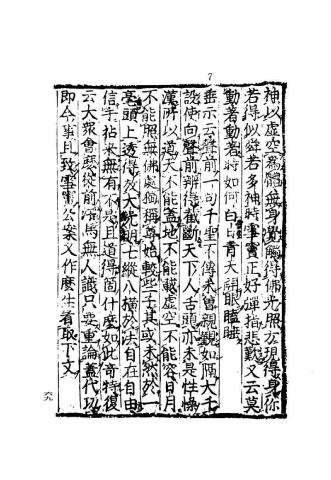 7
神以虛空為體無身覺觸得佛光照方現得身你
若得似舜若多神時雪竇正好彈指悲歎又云莫
動著動著時如何白日青天開眼瞌睡
垂示云聲前一句千聖不傳未曾親覲如隔大千
設使向聲前辨得截斷天下人舌頭亦未是性懆
漢所以道天不能蓋地不能載虛空不能容日月
不能照無佛處獨稱尊始較些子其或未然於一
毫頭上透得放大光明七縱八橫於法自在自由
信手拈來無有不是且道得箇什麼如此奇特復
云大眾會麼從前汗馬無人識只要重論蓋代功
即今事且致雪竇公案又作麼生看取下文
六九